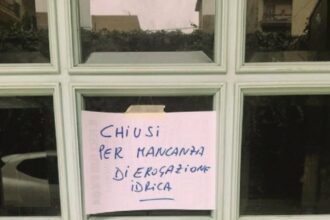 CHIUSI
PER MANCANZA
DI EROGAZIONE
IDRICA